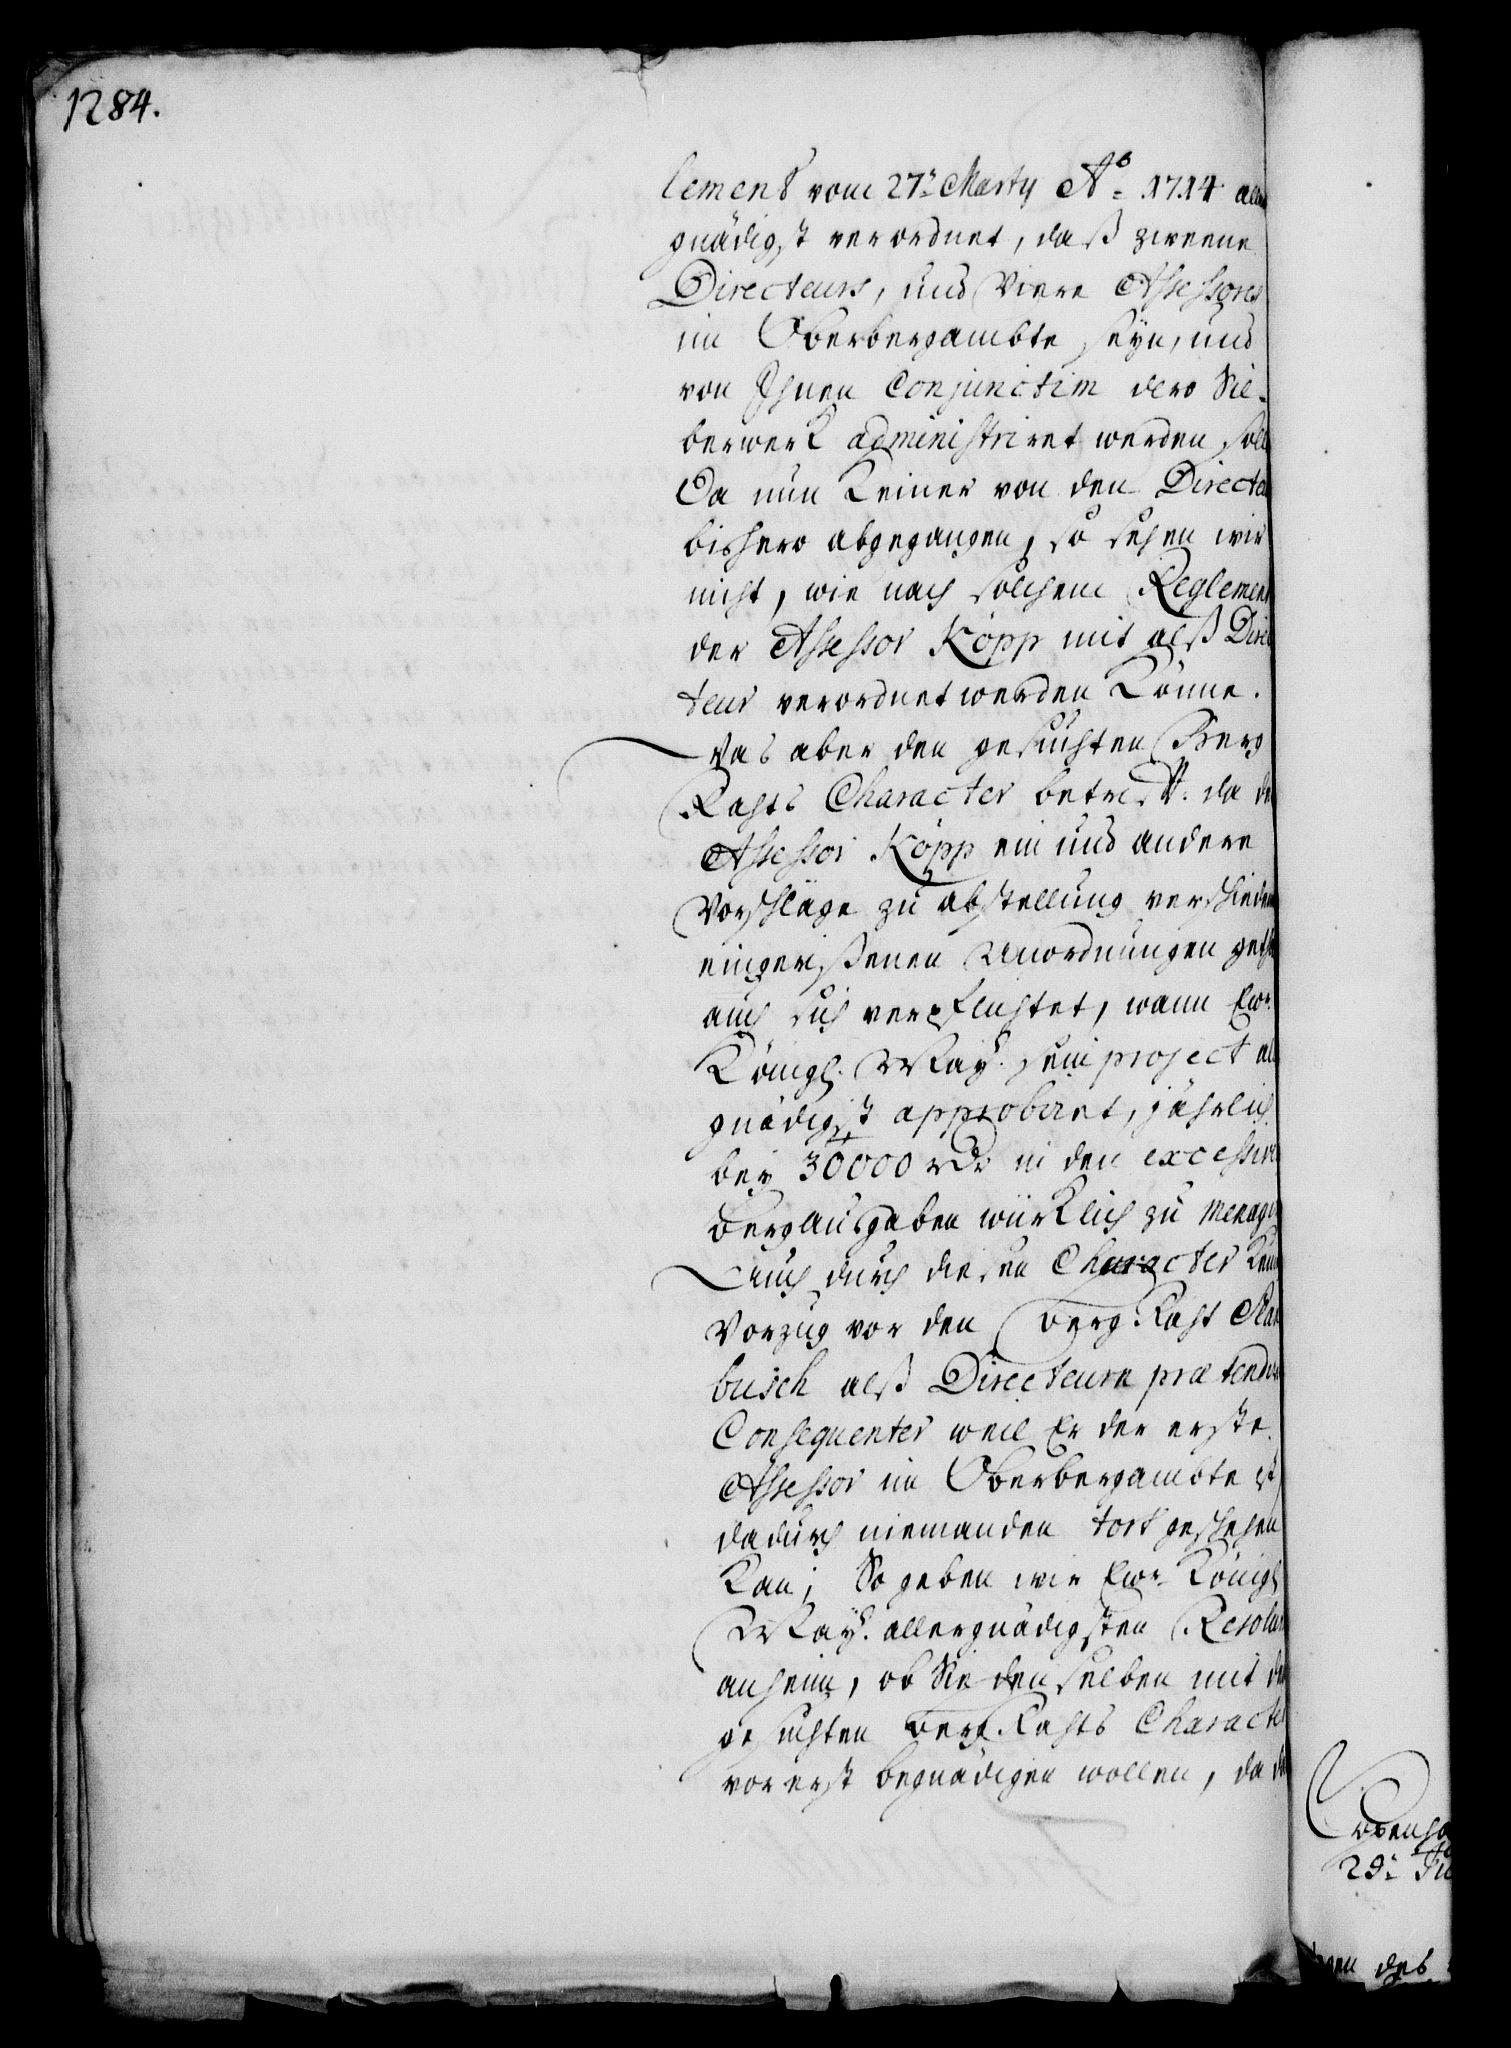 1284.
lements vom 27: Marty Aº. 1714 aller
gnädigst verordnet, daß zweene
Directeurs, und Viere Assessores
im Oberbergambte seyn, und
von Ihnen Conjunctim dero Sil-
berwerk administriret werden solle
Da nun Keiner von den Directeu
bishero abgegangen, so sehen wir
nicht, wie nach solchem Reglement
der Assessor Köpp mit alß Direc
teur verordnet werden Könne.
Was aber den gesuchten Berg
Rahts Character betrifft. da der
Assessor Köpp ein und andere
Vorschläge zu abstellung verschieden
eingerißenen Unordnungen geth
auch sich verpflichtet, wann Ewr.
Königl. May. sein project all
gnädigst approbiret, jährlich
bey 30000 rdr in den excessiven
bergausgaben würklich zu menagi
Auch durch diesen Character Kein
Vorzug vor den berg Raht
busch alß Directeurn prætendir
Consequenter weil Er der erste
Assessor im Oberbergambte ist
dadurch niemanden tort geschehen
Kan; So geben wir Ewr. Königl
May. allergnädigsten Resolut
anheim, ob Sie denselben mit de
gesuchten Berg Rahts Character
vorerst begnädigen wollen, da d
29:
des